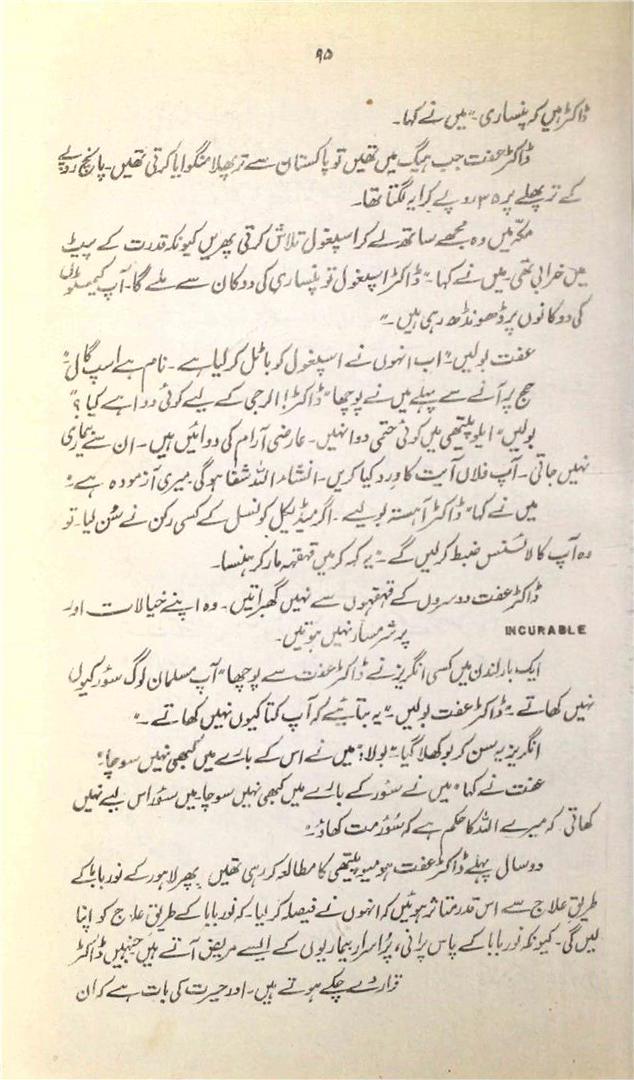 ۹۵
ڈاکٹر ہیں کہ پنساری۔" میں نے کہا۔
ڈاکٹر عفت جب ہیگ میں تھیں تو پاکستان سے تر پھلا منگوایا کرتی تھیں۔ پانچ روپے
کے تر پھلے پر ۳۵ روپے کرایہ لگتا تھا۔
مکّہ میں وہ مجھے ساتھ لے کر اسپغول تلاش کرتی پھریں کیونکہ قدرت کے پیٹ
میں خرابی تھی۔ میں نے کہا۔ "ڈاکٹر اسپغول تو پنساری کی دوکان سے ملے گا۔ آپ کیمسٹوں
کی دوکانوں پر ڈھونڈھ رہی ہیں۔"
عفت بولیں۔ "اب انہوں نے اسپغول کو باٹل کر لیا ہے۔ نام ہے اسپ گال۔"
حج پر آنے سے پہلے میں نے پوچھا "ڈاکٹر! الرجی کے لیے کوئی دوا ہے کیا؟"
بولیں "ایلوپیتھی میں کوئی حتمی دوا نہیں۔ عارضی آرام کی دوائیں ہیں۔ ان سے بیماری
نہیں جاتی۔ آپ فلاں آیت کا ورد کیا کریں۔ انشاء اللہ شفا ہوگی۔ میری آزمودہ ہے۔"
میں نے کہا "ڈاکٹر آہستہ بولیے۔ اگر میڈیکل کونسل کے کسی رکن نے سُن لیا۔ تو
وہ آپ کا لائسنس ضبط کر لیں گے۔" یہ کہہ کر میں قہقہہ مار کر ہنسا۔
ڈاکٹر عفت دوسروں کے قہقہوں سے نہیں گھبراتیں۔ وہ اپنے خیالات اور
INCURABLE پر شرمسار نہیں ہوتیں۔
ایک بار لندن میں کسی انگریز نے ڈاکٹر عفت سے پوچھا "آپ مسلمان لوگ سؤر کیوں
نہیں کھاتے۔" ڈاکٹر عفت بولیں۔ "یہ بتایئے کہ آپ کتا کیوں نہیں کھاتے۔"
انگریز یہ سن کر بوکھلا گیا۔ بولا "میں نے اس کے بارے میں کبھی نہیں سوچا۔"
عفت نے کہا "میں نے سؤر کے بارے میں کبھی نہیں سوچا۔ میں سؤر اس لیے نہیں
کھاتی کہ میرے اللہ کا حکم ہے کہ سؤر مت کھاؤ۔"
دو سال پہلے ڈاکٹر عفت ہومیوپیتھی کا مطالعہ کر رہی تھیں پھر لاہور کے نور بابا کے
طریق علاج سے اس قدر متاثر ہوئیں کہ انہوں نے فیصلہ کر لیا۔ کہ نور بابا کے طریق علاج کو اپنا
لیں گی۔ کیونکہ نور بابا کے پاس پرانی، پُراسرار بیماریوں کے ایسے مریض آتے ہیں جنہیں ڈاکٹر
قرار دے چکے ہوتے ہیں۔ اور حیرت کی بات ہے کہ ان